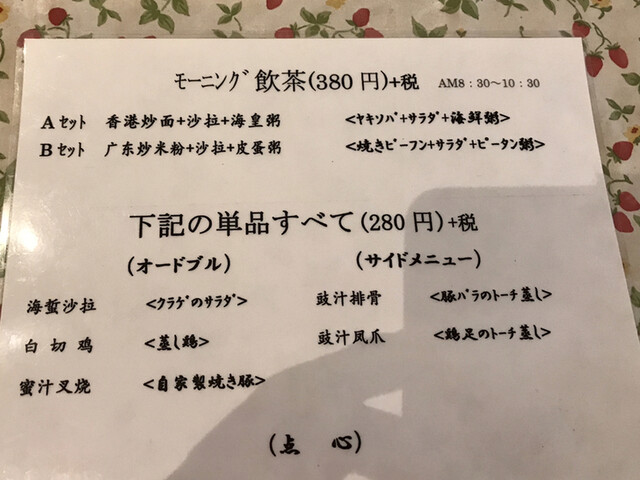 ﾓｰﾆﾝｸﾞ飲茶(380円)+税 AM8：30～10：30
Aｾｯﾄ 香港炒面+沙拉+海皇粥 <ﾔｷｿﾊﾞ+ｻﾗﾀﾞ+海鮮粥>
Bｾｯﾄ 广东炒米粉+沙拉+皮蛋粥 <焼きﾋﾞｰﾌﾝ+ｻﾗﾀﾞ+ﾋﾟｰﾀﾝ粥>
下記の単品すべて(280円)+税
(オードブル) (サイドメニュー)
海蜇沙拉 <ｸﾗｹﾞのｻﾗﾀﾞ> 豉汁排骨 <豚ﾊﾞﾗのﾄｰﾁ蒸し>
白切鸡 <蒸し鶏> 豉汁凤爪 <鶏足のﾄｰﾁ蒸し>
蜜汁叉烧 <自家製焼き豚>
(点 心)